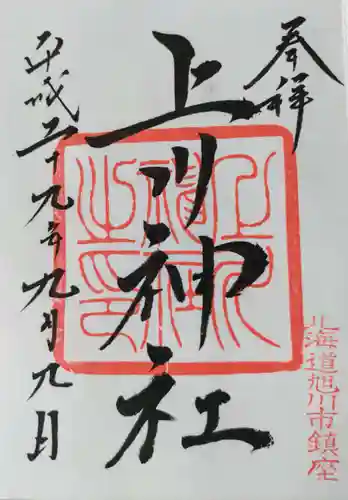 奉拝
北海道旭川市鎮座
上川神社
上川神社之印
平成二十九年九月九日